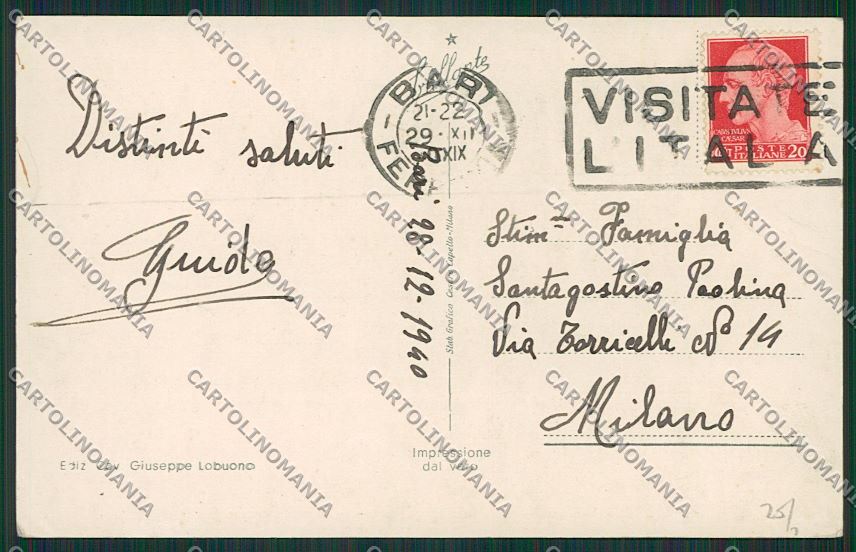 Distinti saluti
Guido
Bari 28-12-1940
BARI
21-22
29 XII
XIX
FERR
VISITATE
L'ITALIA
CAIVS IVLIVS
CAESAR
POSTE
ITALIANE 20
Stim.ma Famiglia
Santagostino Paolina
Via Torricelli No 14
Milano
Ediz. Cav. Giuseppe Lobuono
Impressione
dal vero
Stab. Grafico Cesare Capello-Milano
25/
CARTOLINOMANIA